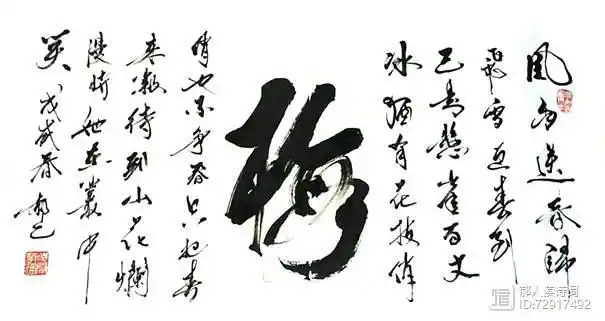 風雨送春歸
飛雪迎春到
已是懸崖百丈
冰猶有花枝俏
梅
俏也不争春只把春
来報待到山花爛
漫時她在叢中
笑 戊戌春
ID:72917492